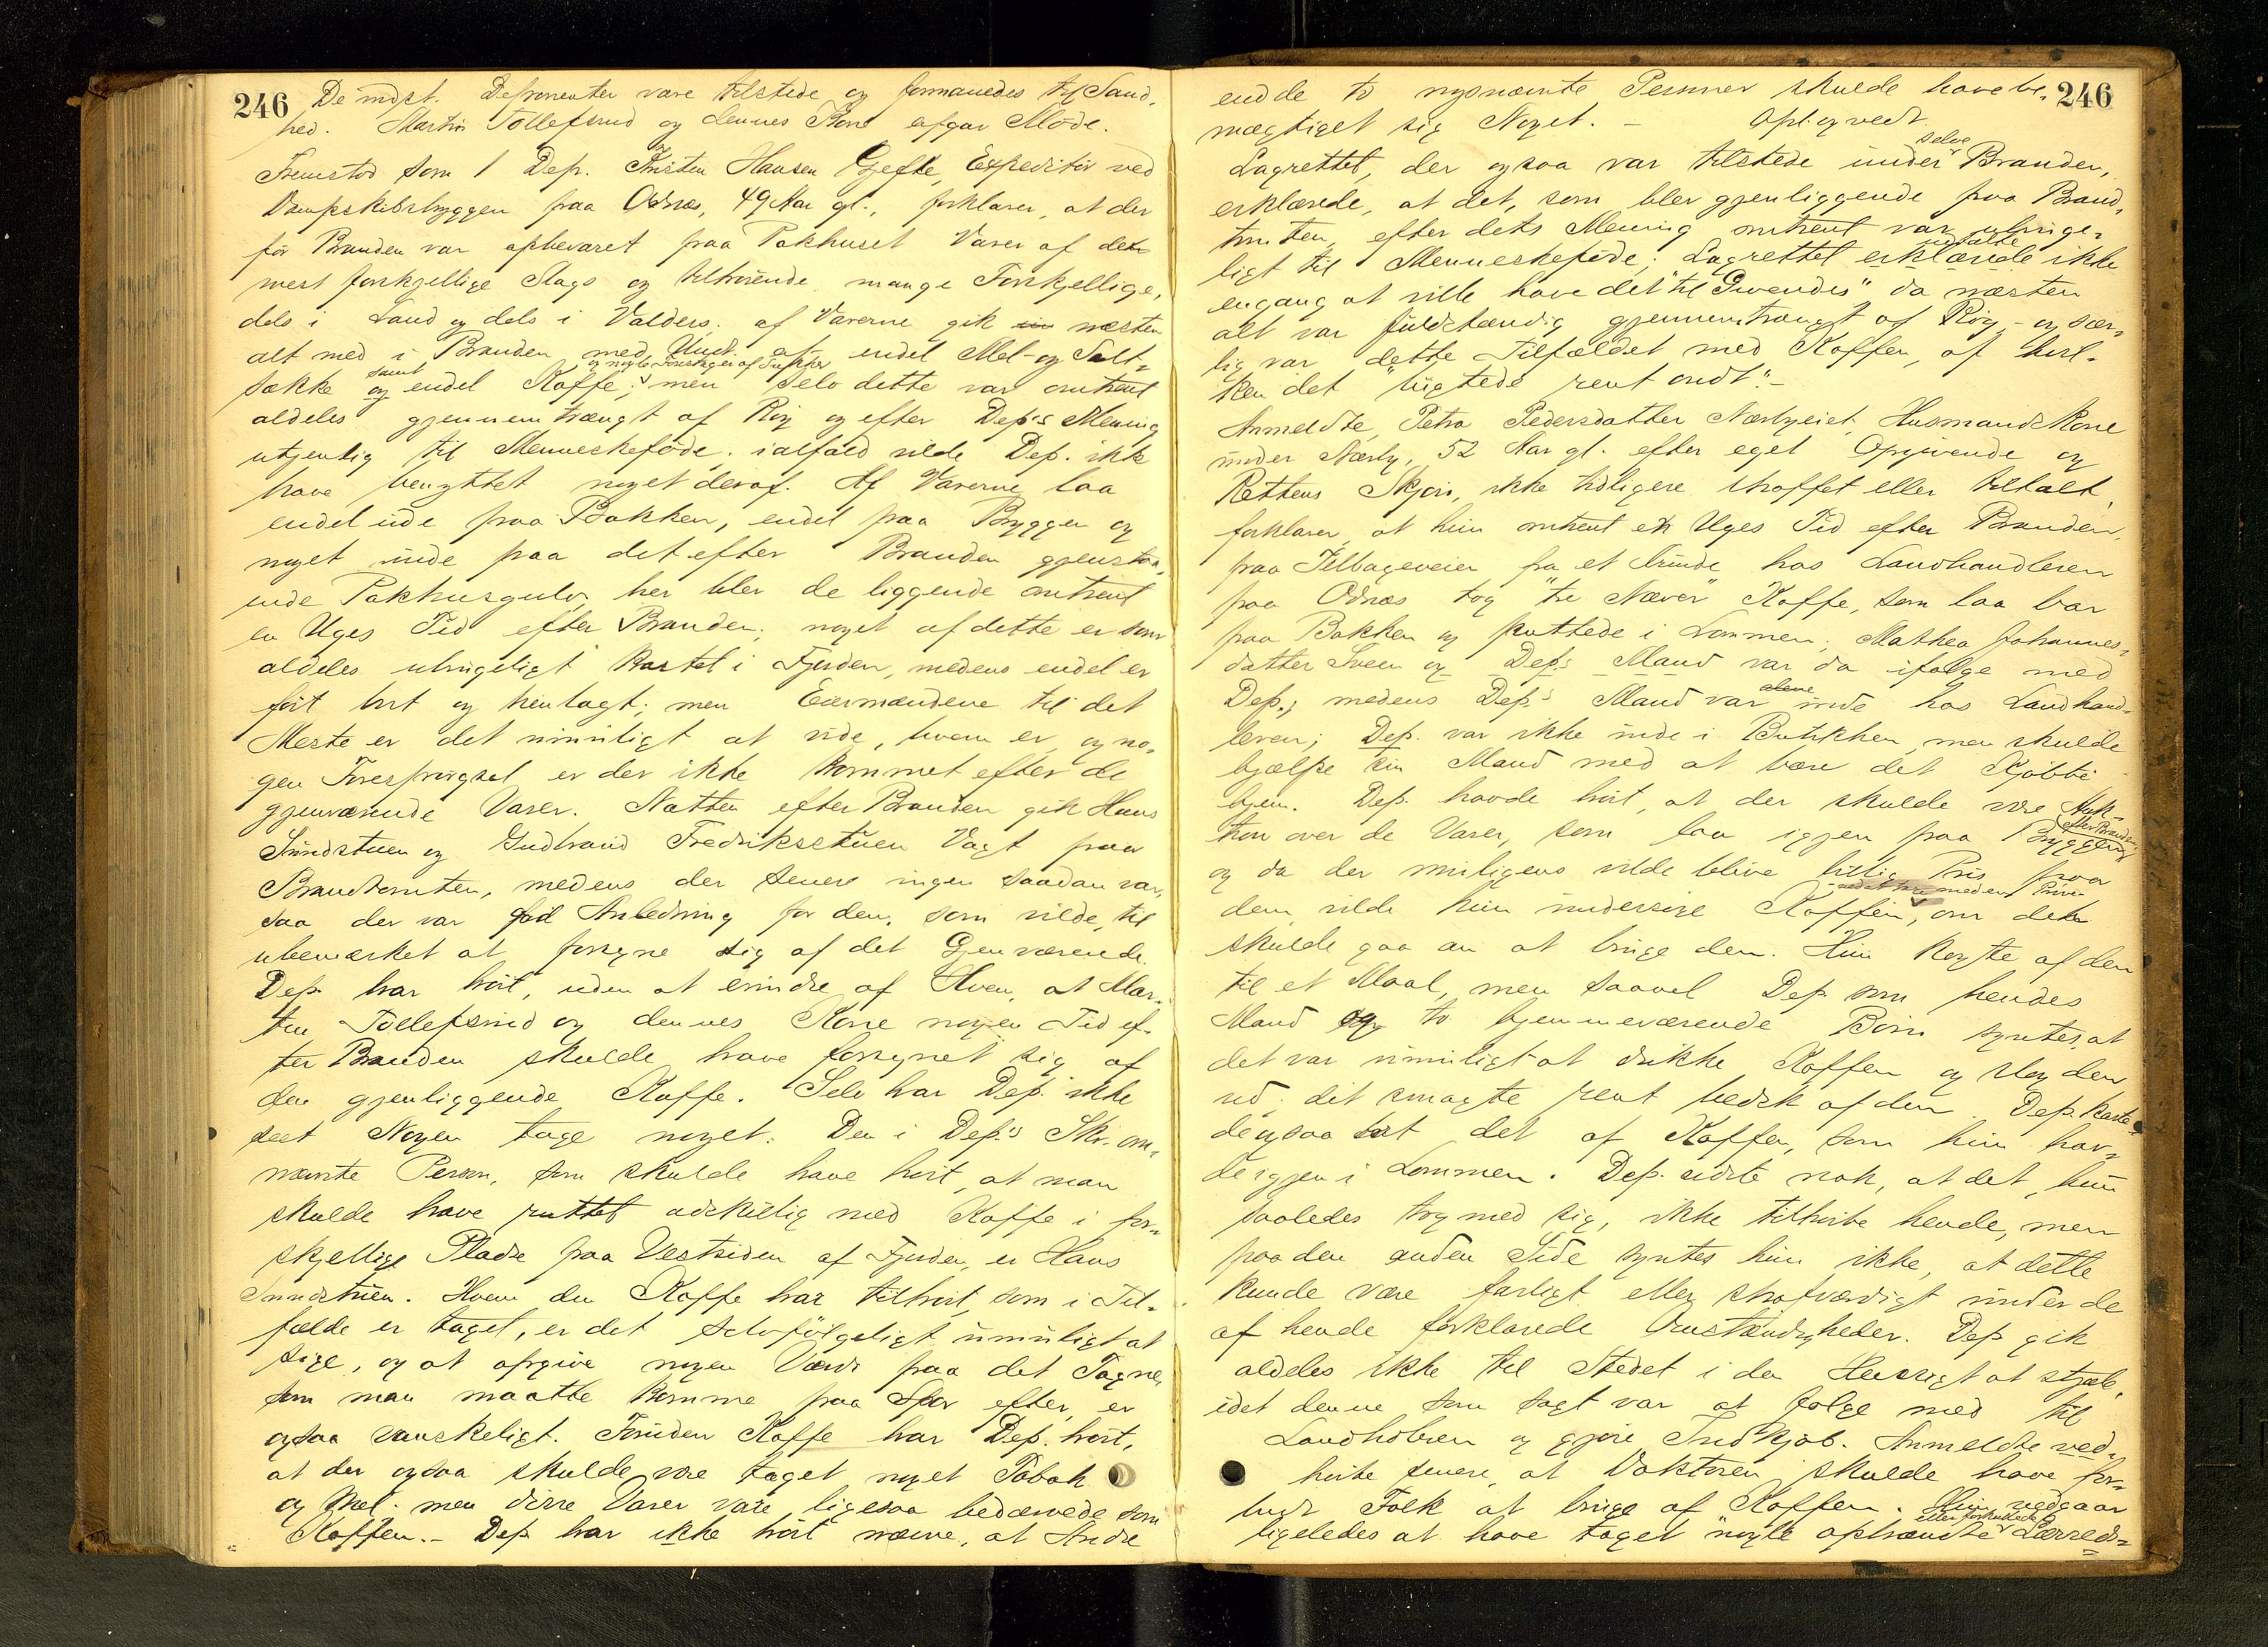 246
De indst. Deponenter vare tilstede og formanedes til Sand-
hed. Martin Tollefsrud og dennes Kone afgav Møde.
Fremstod som 1 Dep. Kristen Hansen Gjefle, Expeditør ved
Dampskibsbryggen paa Odnæs, 49 Aar gl., forklarer, at der
før Branden var opbevaret paa Pakhuset Varer af de
mest forskjellige Slags og tilhørende mange Forskjellige,
dels i Land og dels i Valders. af Varerne gik næsten
alt med i Branden med Undt. af endel Mel- og Salt-
og nogle Forsk­jer af Sukker
samt
sække og endel Kaffe; men selv dette var omtrent
aldeles gjennemtrængt af Røg og efter Dep's Mening
utjenlig til Menneskeføde. ialfald vilde Dep. ikke
have benyttet noget deraf. Af Varerne laa
endel ude paa Bakken, endel paa Bryggen og
noget inde paa det efter Branden gjenstaa-
ende Pakhusgulv, her blev de liggende omtrent
en Uges Tid efter Branden; noget af dette er som
aldeles ubrugeligt kastet i Fjorden, medens endel er
ført bort og henlagt; men Eiermændene til det
Meste er det umuligt at vide, hvem er, og no-
gen Forespørgsel er der ikke kommet efter de
gjenværende Varer. Natten efter Branden gik Hans
Sundstuen og Gudbrand Fredrikstuen Vagt paa
Brandtomten, medens der senere ingen saadan var,
saa der var god Anledning for den, som vilde, til
ubemærket at forsyne sig af det Gjenværende.
Dep. har hørt, uden at erindre af Hvem, at Mar-
tin Tollefsrud og dennes Kone nogen Tid ef-
ter Branden skulde have forsynet sig af
den gjenliggende Kaffe. Selv har Dep. ikke
seet Nogen tage noget. Den i Dep.'s Skr. om-
nævnte Person, som skulde have hørt, at man
skulde have puttet adskillig med Kaffe i for-
skjellige Pladse paa Vestsiden af Fjorden, er Hans
Sundstuen. Hvem den Kaffe har tilhørt, som i Til-
fælde er taget, er det selvfølgeligt umuligt at
sige, og at opgive nogen Værdi paa det Tagne,
som man maatte komme paa Spor efter, er
ogsaa vanskeligt. Foruden Kaffe har Dep. hørt,
at der ogsaa skulde være taget noget Tobak
og Mel. men disse Varer vare ligesaa bedærvede som
Kaffen.- Dep. har ikke hørt nævne, at Andre
246
end de to nysnævnte Personer skulde have be-
mægtiget sig Noget. - Opl. og vedt.
selve
Lagrettet, der ogsaa var tilstede under Branden,
erklærede, at det, som blev gjenliggende paa Brand-
tomten, efter dets Mening omtrent var ubruge-
udtalte
ligt til Menneskeføde; Lagrettet erklærede ikke
engang at ville have det "til Givendes" da næsten
alt var fuldstændig gjennemtrængt af Røg, - og sær-
lig var dette Tilfældet med Kaffen, af hvil-
ken det "lugtede rent ondt".-
Anmeldte, Petra Pedersdatter Nærbyeiet, Husmandskone
under Nærby, 52 Aar gl. efter eget Opgivende og
Rettens Skjøn, ikke tidligere straffet eller tiltalt,
forklarer, at hun omtrent en Uges Tid efter Branden,
paa Tilbageveien fra et Ærinde hos Landhandleren
paa Odnæs tog "tre Næver" Kaffe, som laa bar
paa Bakken og puttede i Lommen; Mathea Johannes-
datter Sveen og Dep.s Mand var da ifølge med
alene
Dep.; medens Dep's Mand var inde hos Landhand-
leren; Dep. var ikke inde i Butikken, men skulde
hjælpe sin Mand med at bære det Kjøbte
hjem. Dep. havde hørt, at der skulde være Auk-
efter Branden
tion over de Varer, som laa igjen paa Bryggen
og da der muligens vilde blive billig Pris paa
ved at tage med en Prøve
dem vilde hun undersøge Kaffen, om det
skulde gaa an at bruge den. Hun kogte af den
til et Maal, men saavel Dep. som hendes
Mand og to hjemmeværende Børn syntes, at
det var umuligt at drikke Kaffen og slog den
ud. det smagte rent bedsk af den. Dep. kaste-
de ogsaa bort det af Kaffen, som hun hav-
de igjen i Lommen. Dep. vidste nok, at det, hun
saaledes tog med sig, ikke tilhørte hende, men
paa den anden Side syntes hun ikke, at dette
kunde være farligt eller strafværdigt under de
af hende forklarede Omstændigheder. Dep. gik
aldeles ikke til Stedet i den Hensigt at stjæle,
idet denne som sagt var at følge med til
Landhdleren og gjøre Indkjøb. Anmeldte ved-
hørte senere, at Doktoren skulde have for-
budt Folk at bruge af Kaffen. Hun vedgaar
eller forkullede
ligeledes at have taget nogle opbrændte Lærreds-